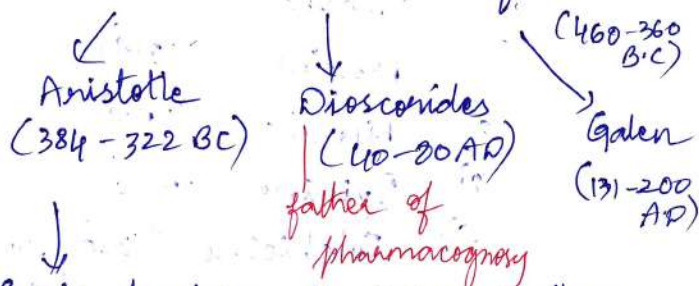 (460-360
B.C)
Aristotle
(384-322 BC)
Dioscorides
(40-80 AD)
father of
pharmacognosy
Galen
(131-200
AD)